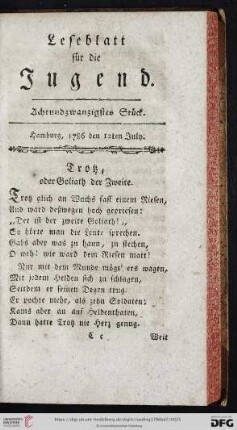 Leseblatt
für die
Jugend.
Achtundzwanzigstes Stück.
Hamburg, 1786 den 12ten July.
Trotz,
oder Goliath der Zweite.
Trotz glich an Wuchs fast einem Riesen,
Und ward deßwegen hoch gepriesen:
„Der ist der zweite Goliath!„
So hörte man die Leute sprechen.
Gabs aber was zu haun, zu stechen,
O weh! wie ward dem Riesen matt!
Nur mit dem Munde mogt' ers wagen,
Mit jedem Helden sich zu schlagen,
Seitdem er seinen Degen trug.
Er pochte mehr, als zehn Soldaten;
Kams aber an auf Heldenthaten,
Dann hatte Trotz nie Herz genug.
C c
Weit
DFG